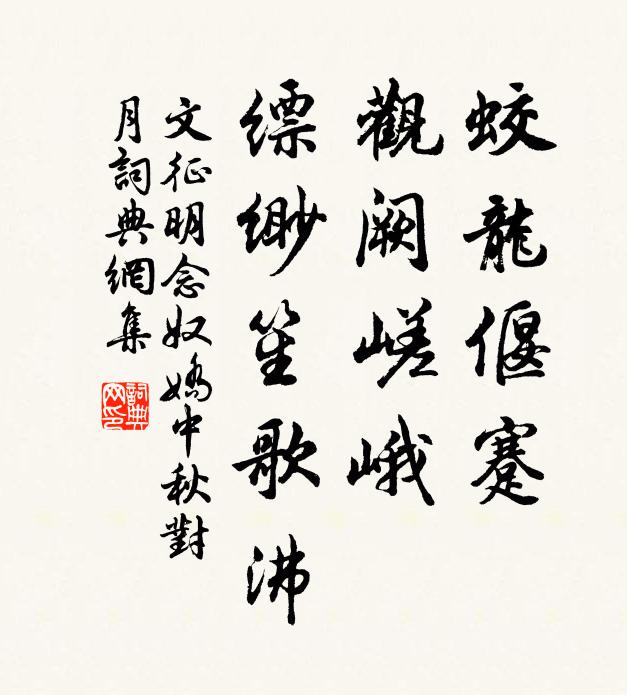 蛟龍偃蹇
觀阙嵯峨
缥緲笙歌沸
文征明念奴嬌中秋對
月詞典網集
詞典网印